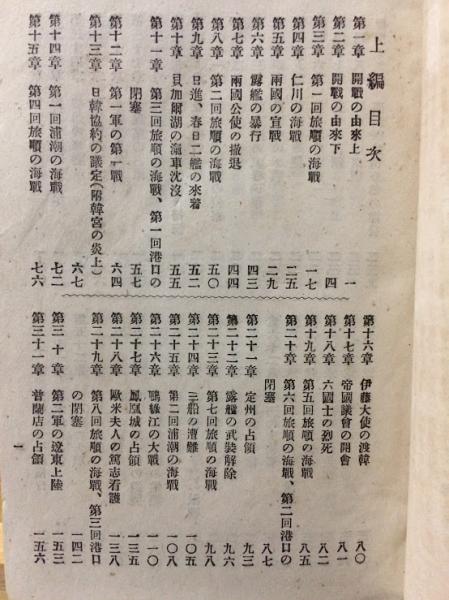 上編目次
第一章 開戰の由來上 一
第二章 開戰の由來下 四
第三章 第一回旅順の海戰 一七
第四章 仁川の海戰 二五
第五章 兩國の宣戰 二九
第六章 露艦の暴行 四三
第七章 兩國公使の撤退 四四
第八章 第二回旅順の海戰 五〇
第九章 日進、春日二艦の來着 五二
第十章 貝加爾湖の瀛車沈沒 五五
第十一章 第三回旅順の海戰、第一回港口の
閉塞 五七
第十二章 第一軍の第一戰 六四
第十三章 日韓協約の議定(附韓宮の炎上) 六七
第十四章 第一回浦潮の海戰 七二
第十五章 第四回旅順の海戰 七六
第十六章 伊藤大使の渡韓 八〇
第十七章 帝國議會の開會 八一
第十八章 六國士の烈死 八二
第十九章 第五回旅順の海戰 八五
第二十章 第六回旅順の海戰、第二回港口の
閉塞 八七
第二十一章 定州の占領 九三
第二十二章 露艦の武裝解除 九六
第二十三章 第七回旅順の海戰 九八
第二十四章 三船の遭難 一〇五
第二十五章 第二回浦潮の海戰 一〇八
第二十六章 鴨綠江の大戰 一一〇
第二十七章 鳳凰城の占領 一三五
第二十八章 歐米夫人の篤志看護 一三八
第二十九章 第八回旅順の海戰、第三回港口
の閉塞 一四二
第三十章 第二軍の遼東上陸 一五三
第三十一章 普蘭店の占領 一五六
一